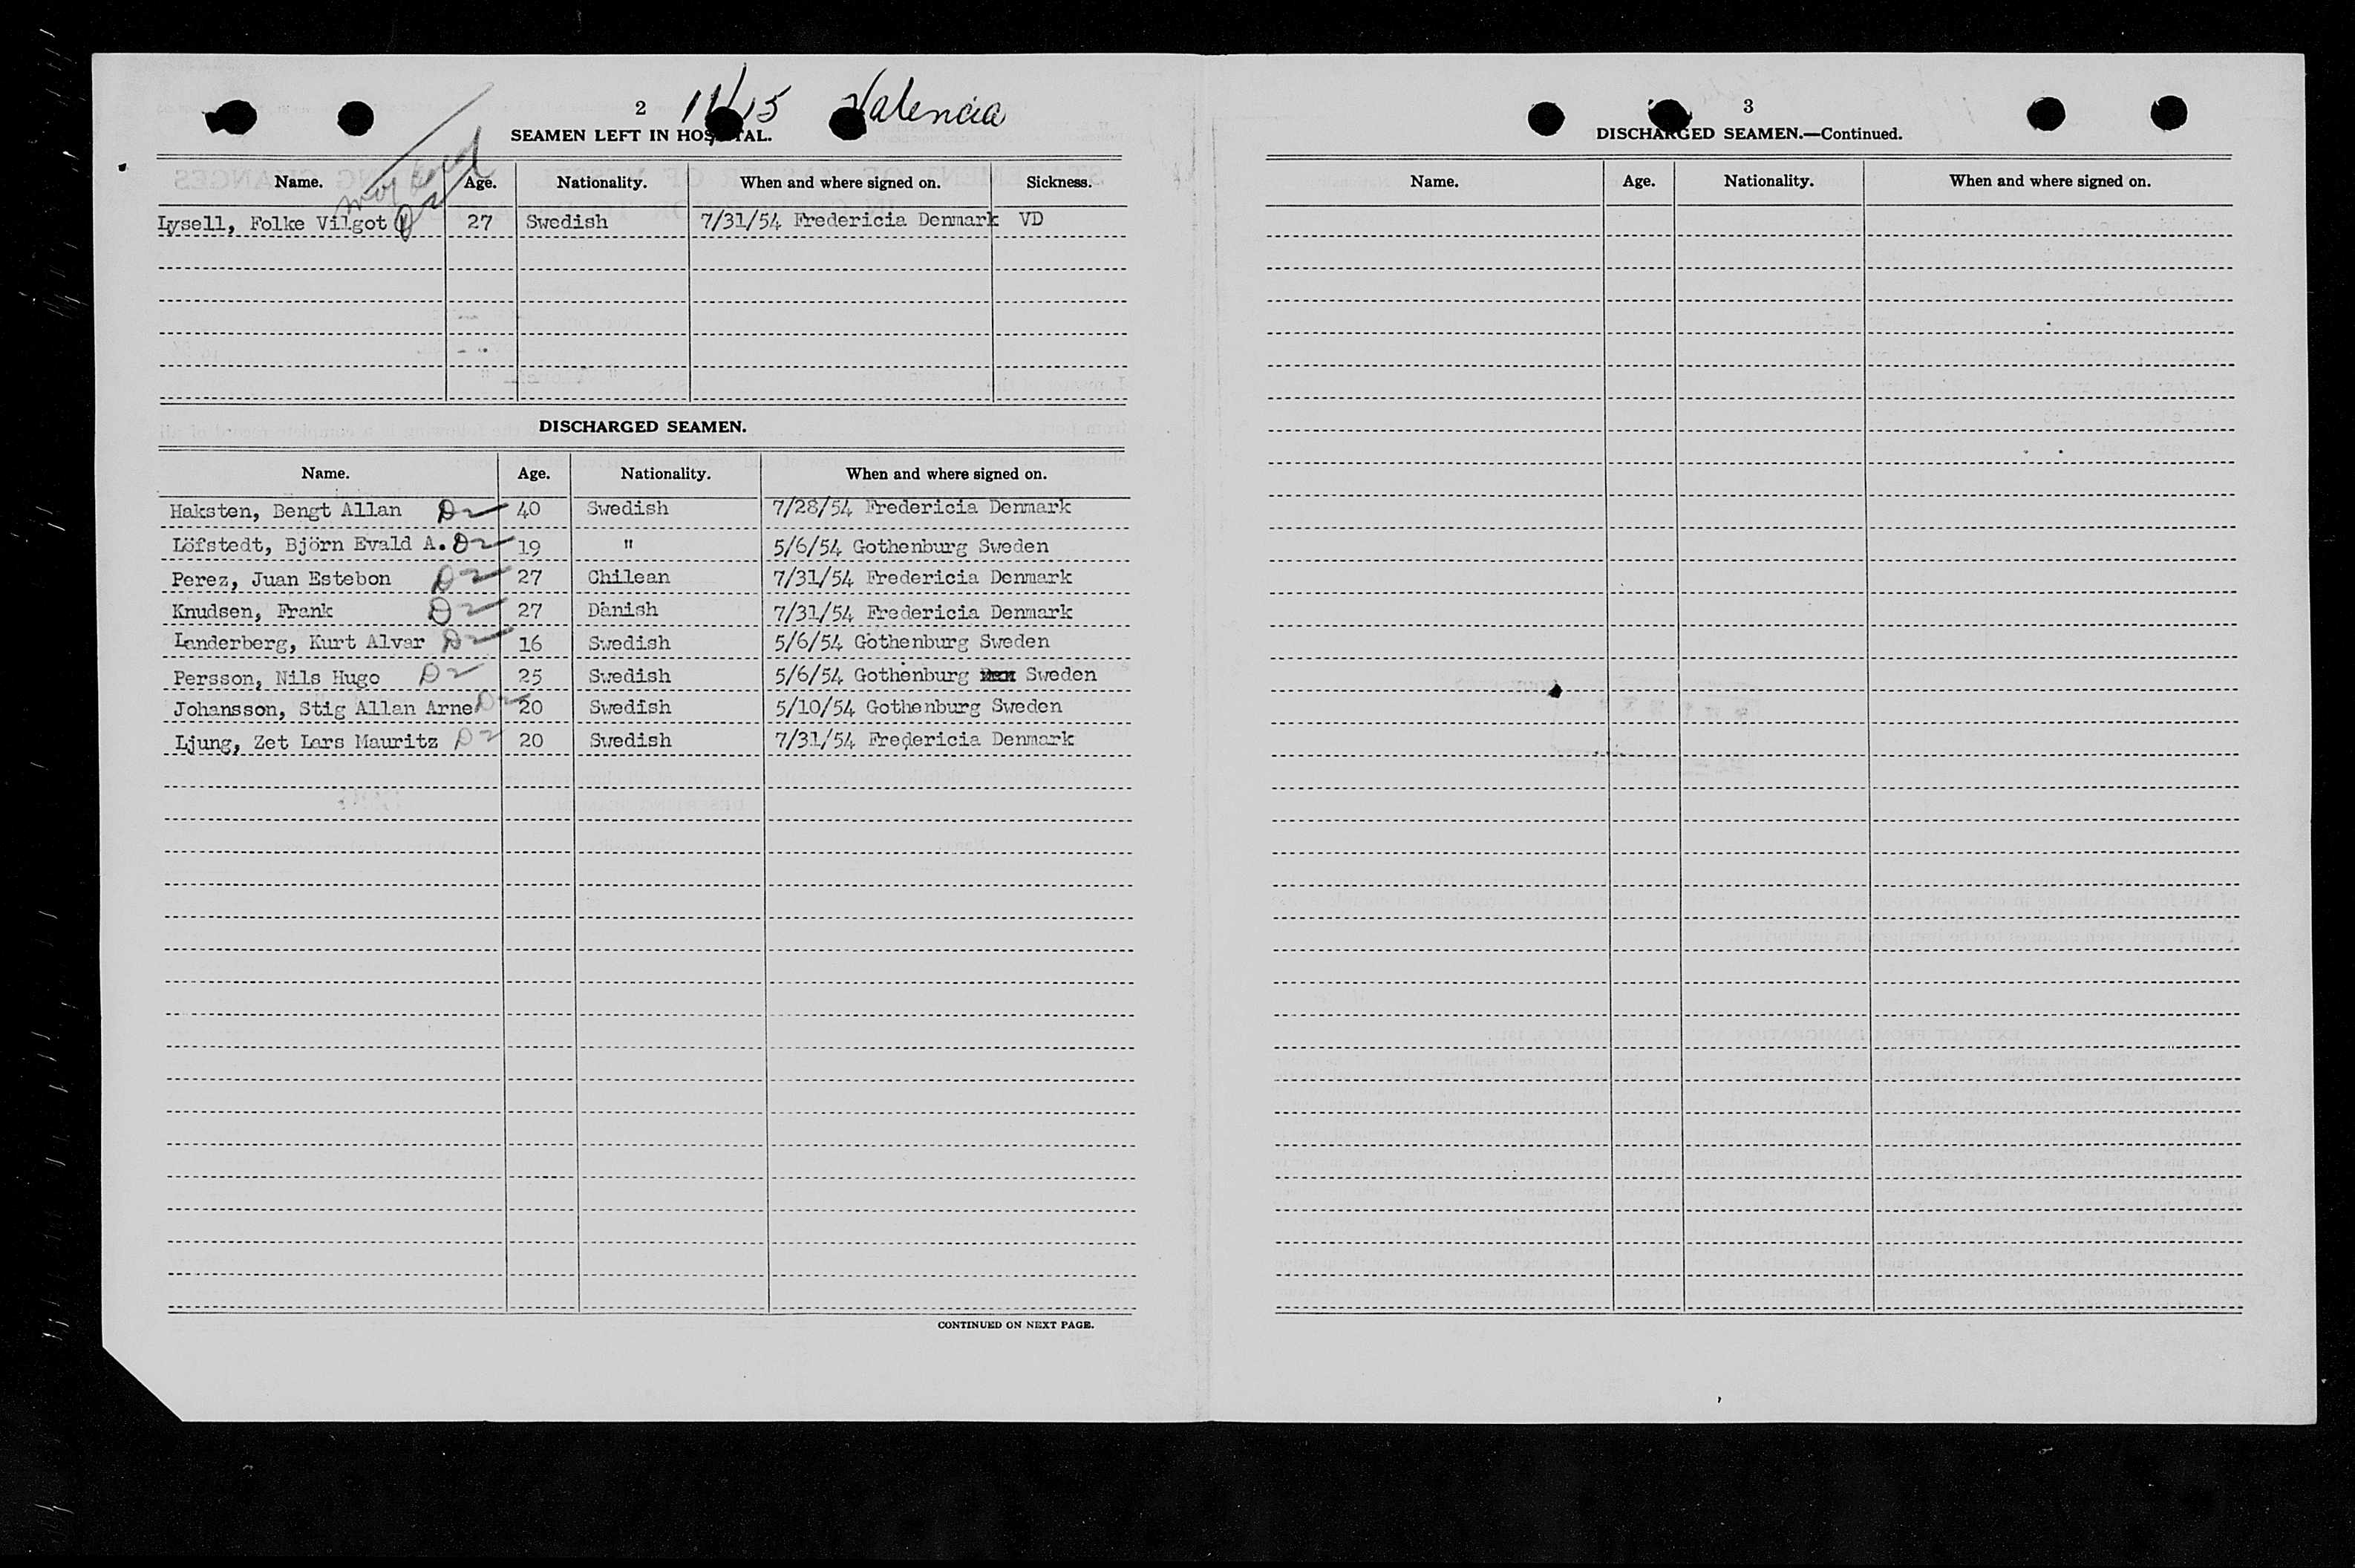 2 11/15 Valencia
SEAMEN LEFT IN HOSPITAL.
Name. Age. Nationality. When and where signed on. Sickness.
Lysell, Folke Vilgot 27 Swedish 7/31/54 Fredericia Denmark VD
DISCHARGED SEAMEN.
Name. Age. Nationality. When and where signed on.
Haksten, Bengt Allan D2 40 Swedish 7/28/54 Fredericia Denmark
Löfstedt, Björn Evald A. D2 19 " 5/6/54 Gothenburg Sweden
Perez, Juan Estebon D2 27 Chilean 7/31/54 Fredericia Denmark
Knudsen, Frank D2 27 Danish 7/31/54 Fredericia Denmark
Landerberg, Kurt Alvar D2 16 Swedish 5/6/54 Gothenburg Sweden
Persson, Nils Hugo D2 25 Swedish 5/6/54 Gothenburg Sweden
Johansson, Stig Allan Arne D2 20 Swedish 5/10/54 Gothenburg Sweden
Ljung, Zet Lars Mauritz D2 20 Swedish 7/31/54 Fredericia Denmark
CONTINUED ON NEXT PAGE.
3
DISCHARGED SEAMEN.—Continued.
Name. Age. Nationality. When and where signed on.